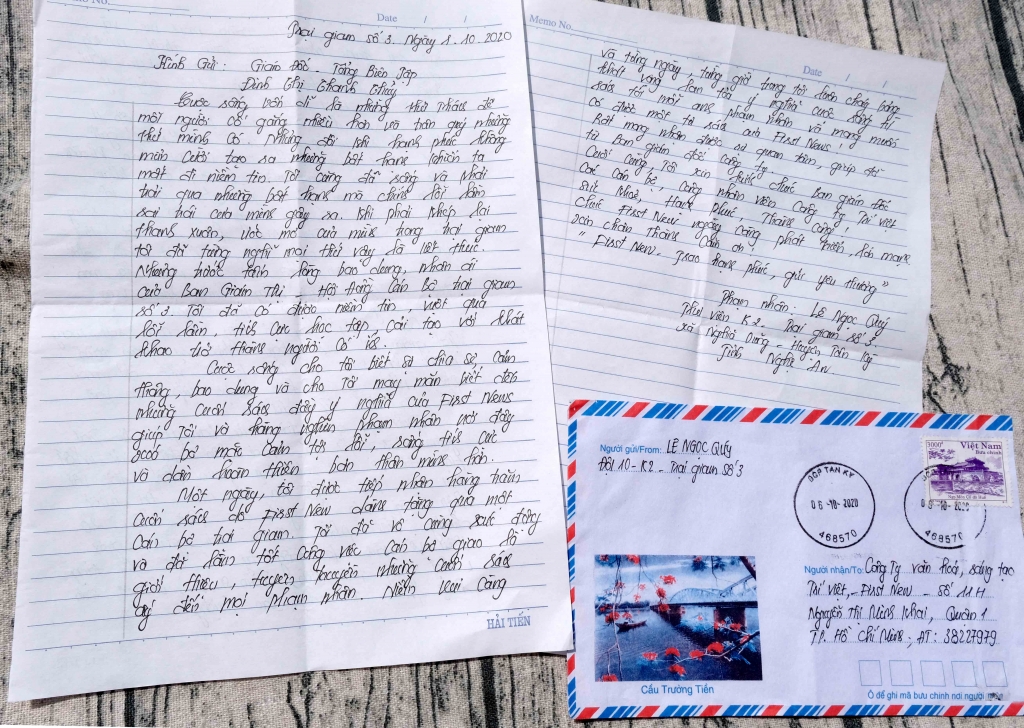 Date / /
Trại giam số 3. Ngày 1.10.2020
Kính Gửi: Giám Đốc - Tổng Biên Tập
Đinh Thị Thanh Thủy
Cuộc sống vốn dĩ là những thử thách để
mỗi người cố gắng nhiều hơn và trân quý những
thứ mình có. Nhưng đôi khi hạnh phúc không
mỉm cười tạo ra những bất hạnh khiến ta
mất đi niềm tin. Tôi cũng đã sống và phải
trải qua những bất hạnh mà chính lỗi lầm
sai trái của mình gây ra. Khi phải khép lại
thanh xuân, ước mơ của mình trong trại giam
tôi đã từng nghĩ mọi thứ vậy là kết thúc.
Nhưng trước tình lòng bao dung, nhân ái
của Ban Giám Thị - Hội Đồng Cán Bộ trại giam
số 3. Tôi đã có được niềm tin, vượt qua
lỗi lầm, tích cực học tập, cải tạo với khát
khao trở thành người có ích.
Cuộc sống cho tôi biết sự chia sẻ, cảm
thông, bao dung và cho tôi may mắn biết đến
những cuốn sách đầy ý nghĩa của First News
giúp tôi và hàng nghìn phạm nhân nơi đây
xoá bỏ mặc cảm tội lỗi, sống tích cực
và dần hoàn thiện bản thân mình hơn.
Một ngày, tôi được tiếp nhận hàng trăm
cuốn sách do First New dành tặng qua một
cán bộ trại giam. Tôi đã vô cùng xúc động
và đã làm tốt công việc cán bộ giao là
giới thiệu, tuyên truyền những cuốn sách
ấy đến mọi phạm nhân. Niềm vui càng
HẢI TIẾN
Memo No.
Date / /
và từng ngày, từng giờ trong tôi luôn cháy bỏng
khát vọng đem lại ý nghĩa cuộc sống từ
sách tới mỗi anh phạm nhân và mong muốn
có được một tủ sách của First News!
Rất mong nhận được sự quan tâm, giúp đỡ
từ Ban giám đốc công ty.
Cuối cùng tôi xin kính chúc Ban giám đốc
các cán bộ, công nhân viên Công ty Trí Việt
Sức Khoẻ, Hạnh Phúc, Thành Công!
Chúc First New ngày càng phát triển, lớn mạnh
xin chân thành cảm ơn!
"First New. Trao hạnh phúc, gửi yêu thương"
Phạm nhân: Lê Ngọc Quý
Thư viện K2 - Trại giam số 3
xã Nghĩa Dũng - Huyện Tân Kỳ
Tỉnh Nghệ An
Người gửi/From: LÊ NGỌC QUÝ
Đội 10 - K2 - Trại giam số 3
3000đ Việt Nam
Bưu chính
06-10-2020
468570
468570
Người nhận/To: Công Ty văn hoá, sáng tạo
Trí Việt - First New - Số 11H
Nguyễn Thị Minh Khai, Quận 1
T.P. Hồ Chí Minh; ĐT: 38227979
Cầu Trường Tiền
Ô để ghi mã bưu chính nơi người nhận